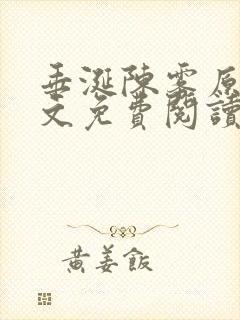 垂涎陳霧原
文免費閱讀
黃姜飯